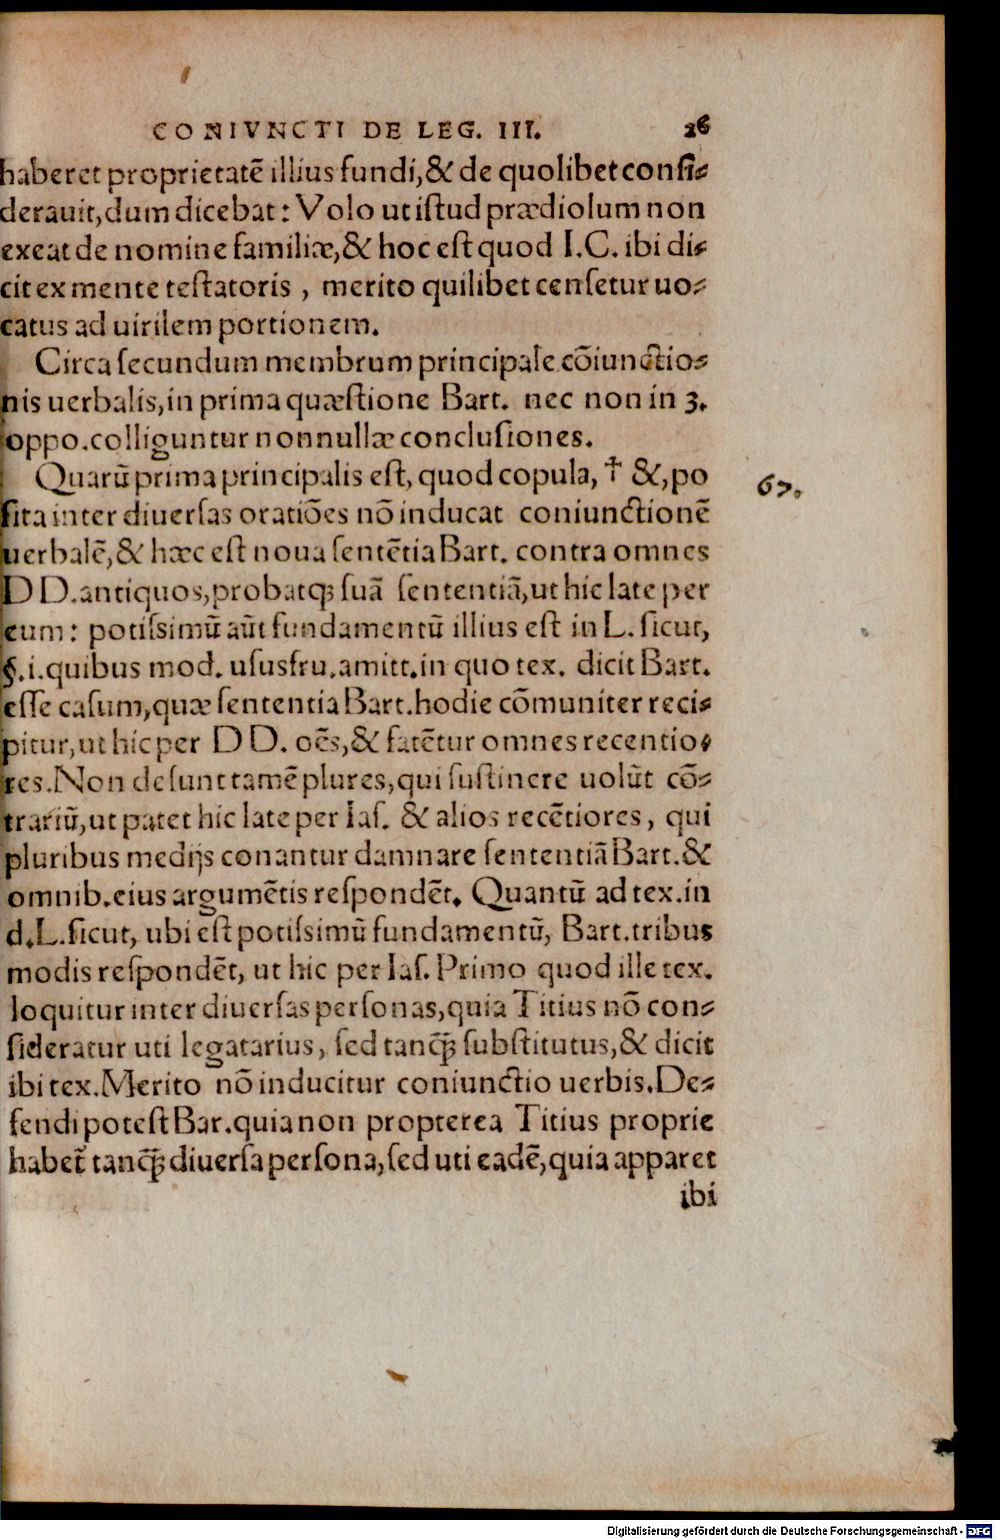 CONIVNCTI DE LEG. III. 26
haberet proprietatē illius fundi,& de quolibet consi-
derauit,dum dicebat: Volo ut istud prædiolum non
exeat de nomine familiæ,& hoc est quod I.C. ibi di-
cit ex mente testatoris , merito quilibet censetur uo-
catus ad uirilem portionem.
Circa secundum membrum principale cōiunctio-
nis uerbalis,in prima quæstione Bart. nec non in 3.
oppo.colliguntur nonnullæ conclusiones.
Quarū prima principalis est, quod copula, † &,po
sita inter diuersas oratiōes nō inducat coniunctionē
uerbalē,& hæc est noua sentētia Bart. contra omnes
DD.antiquos,probatqꝫ suā sententiā,ut hic late per
eum: potissimū aūt fundamentū illius est in L. sicut,
§.i.quibus mod. ususfru.amitt.in quo tex. dicit Bart.
esse casum,quæ sententia Bart.hodie cōmuniter reci-
pitur,ut hic per DD. oēs,& fatētur omnes recentio-
res.Non desunt tamē plures,qui sustinere uolūt cō-
trariū,ut patet hic late per Ias. & alios recētiores, qui
pluribus medijs conantur damnare sententiā Bart.&
omnib.eius argumētis respondēt. Quantū ad tex.in
d.L.sicut, ubi est potissimū fundamentū, Bart.tribus
modis respondēt, ut hic per Ias. Primo quod ille tex.
loquitur inter diuersas personas,quia Titius nō con-
sideratur uti legatarius, sed tanq̄ꝫ substitutus,& dicit
ibi tex.Merito nō inducitur coniunctio uerbis.De-
fendi potest Bar.quia non propterea Titius proprie
habet̃ tanq̄ꝫ diuersa persona,sed uti eadē,quia apparet
ibi
67.
Digitalisierung gefördert durch die Deutsche Forschungsgemeinschaft - DFG